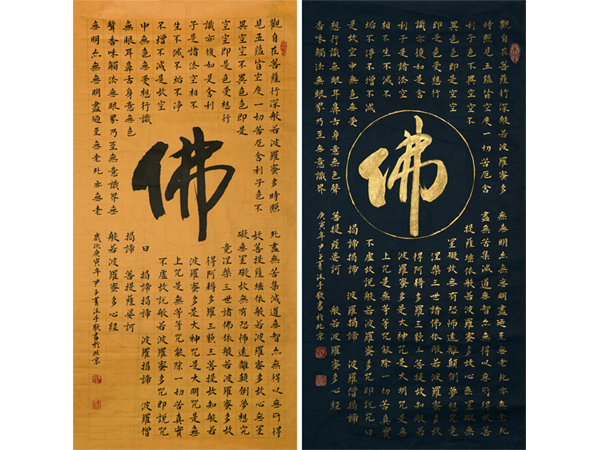 觀自在菩薩行深般若波羅蜜多時照
見五蘊皆空度一切苦厄舍利子色不
異空空不異色色即是
空空即是色受想行
識亦復如是舍利
子是諸法空相不
生不滅不垢不淨
不增不減是故空
中無色無受想行識
無眼耳鼻舌身意無色
聲香味觸法無眼界乃至無意識界無
無明亦無無明盡乃至無老死亦無老
佛
死盡無苦集滅道無智亦無得以無所得
故菩提薩埵依般若波羅蜜多故心無罣
礙無罣礙故無有恐怖遠離顛倒夢想究
竟涅槃三世諸佛依般若波羅蜜多故
得阿耨多羅三藐三菩提故知般若
波羅蜜多是大神咒是大明咒是無
上咒是無等等咒能除一切苦真實
不虛故說般若波羅蜜多咒即說咒
曰 揭諦揭諦 波羅揭諦 波羅僧
揭諦 菩提薩婆訶
般若波羅蜜多心經
歲次庚寅年甲子敬書於北京
觀自在菩薩行深般若波羅蜜多
時照見五蘊皆空度一切苦厄舍
利子色不異空空不
異色色即是空空
即是色受想行
識亦復如是舍
利子是諸法空
相不生不滅不
垢不淨不增不減
是故空中無色無受
想行識無眼耳鼻舌身意無色聲
香味觸法無眼界乃至無意識界
佛
無無明亦無無明盡乃至無老死亦無老死
盡無苦集滅道無智亦無得以無所得故菩
提薩埵依般若波羅蜜多故心無罣礙無
罣礙故無有恐怖遠離顛倒夢想究竟
涅槃三世諸佛依般若波羅蜜多故
得阿耨多羅三藐三菩提故知般若
波羅蜜多是大神咒是大明咒是無
上咒是無等等咒能除一切苦真實
不虛故說般若波羅蜜多咒即說咒曰
揭諦揭諦 波羅揭諦 波羅僧揭諦
菩提薩婆訶 般若波羅蜜多心經
庚寅年甲子敬書於北京